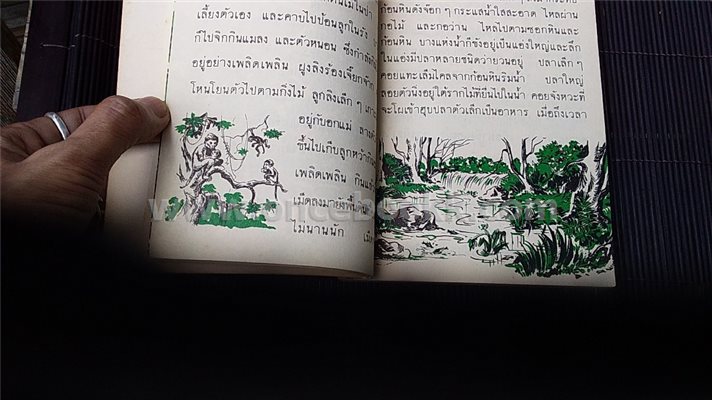 เลี้ยงตัวเอง และคาบไปป้อนลูกในรัง
ก็ไปจิกกินแมลง และตัวหนอน ซึ่งกำลัง
อยู่อย่างเพลิดเพลิน ฝูงลิงร้องเจี๊ยกจ๊าก
โหนโยนตัวไปตามกิ่งไม้ ลูกลิงเล็กๆ เกาะ
อยู่กับอกแม่
ขึ้นไปเก็บลูกหว้ากิน
เพลิดเพลิน กินแล้ว
เม็ดลงมายังพื้น
ไม่นานนัก
ก้อนหินดังจ๊อกๆ กระแสน้ำใสสะอาด ไหลผ่าน
กอไม้ และกอว่าน ไหลไปตามซอกหินและ
ก้อนหิน บางแห่งน้ำก็ขังอยู่เป็นแอ่งใหญ่และลึก
ในแอ่งมีปลาหลายชนิดว่ายวนอยู่ ปลาเล็กๆ
คอยแทะเล็มไคลจากก้อนหินริมน้ำ ปลาใหญ่
ลอยตัวนิ่งอยู่ใต้รากไม้ที่ยื่นไปในน้ำ คอยจังหวะที่
จะโผเข้าฮุบปลาตัวเล็กเป็นอาหาร เมื่อถึงเวลา